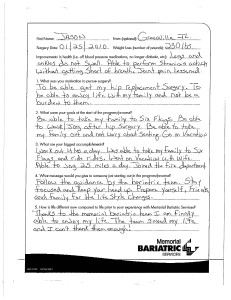 First Name: JASON Town (optional): Greenville IL
Surgery Date: 01/25/2010 Weight Lost (number of pounds): 230 lbs.
Improvements in health (i.e. off blood pressure medications, no longer diabetic, etc): Legs and
ankles do not swell. Able to perform Strenous activity
Without getting Short of breath. Joint pain lessened
1. What was your motivation to pursue surgery?
To be able get my hip Replacement Surgery. To
be able to enjoy life with my family and not be a
burden to them.
2. What were your goals at the start of the program/process?
Be able to take my family to Six Flags. be able
to Walk/Jog after hip Surgery. Be able to take
my family out and not worry about Seating. Go on Vacation
3. What was your biggest accomplishment?
Work out 4 hrs a day. Was able to take my family to Six
Flags and ride rides. Went on Vacation with Wife.
Able to Jog 2.5 miles a day. Joined the Fire department
4. What message would you give to someone just starting out in the program/process?
Follow the guidance by the bariatric team. Stay
focused and keep your head up. Prepare yourself, Friends
and family for the life Style Changes.
5. How is life different now compared to life prior to your experience with Memorial Bariatric Services?
Thanks to the memorial Bariatric team I am finally
able to enjoy my life. The team Saved my life
and I can't thank them enough!
Memorial
BARIATRIC
SERVICES